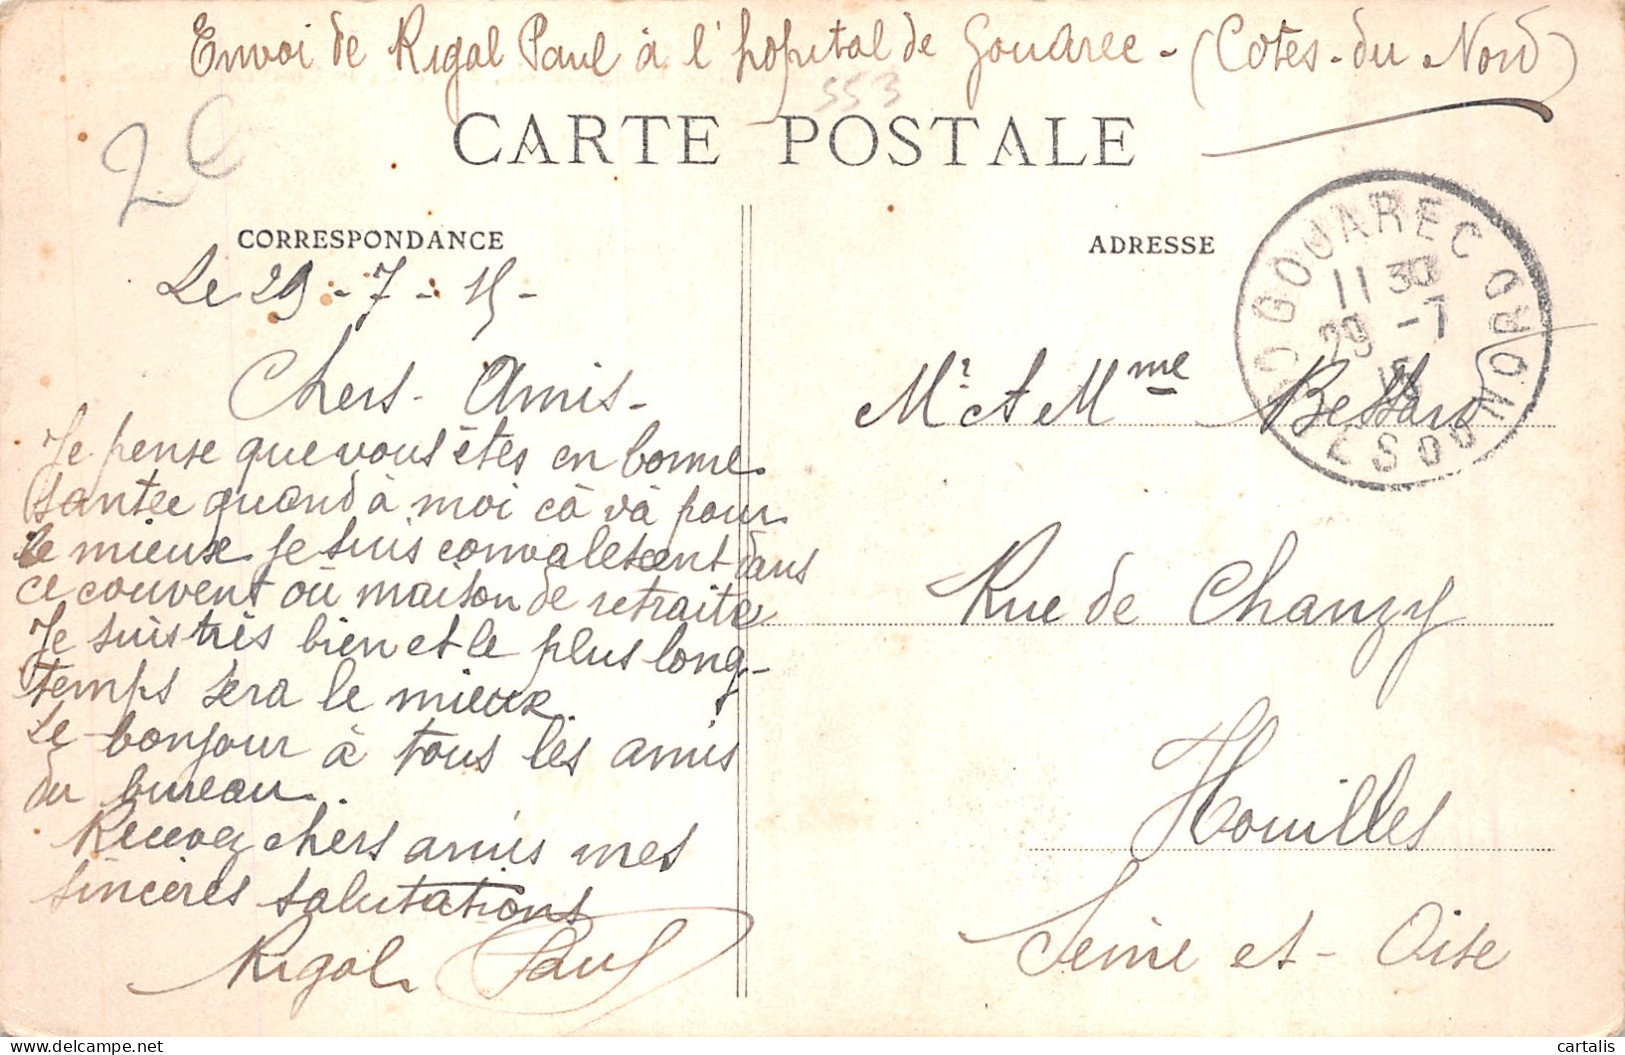 Envoi de Rigal Paul à l'hopital de Gouarec - (Cotes-du Nord)
553
CARTE POSTALE
2€
CORRESPONDANCE
Le 29-7-15-
Chers-Amis-
Je pense que vous êtes en bonne
santee quand à moi cà và pour
le mieux je suis convalescent dans
ce couvent où maison de retraite
Je suis très bien et le plus long-
temps sera le mieux.
Le bonjour à tous les amis
du bureau.
Recevez chers amis mes
sincères salutations
Rigal Paul
ADRESSE
GOUAREC
11 30
29 -7
15
CÔTES DU NORD
Mr et Mme
Rue de Chanzy
Houilles
Seine et-Oise
cartalis